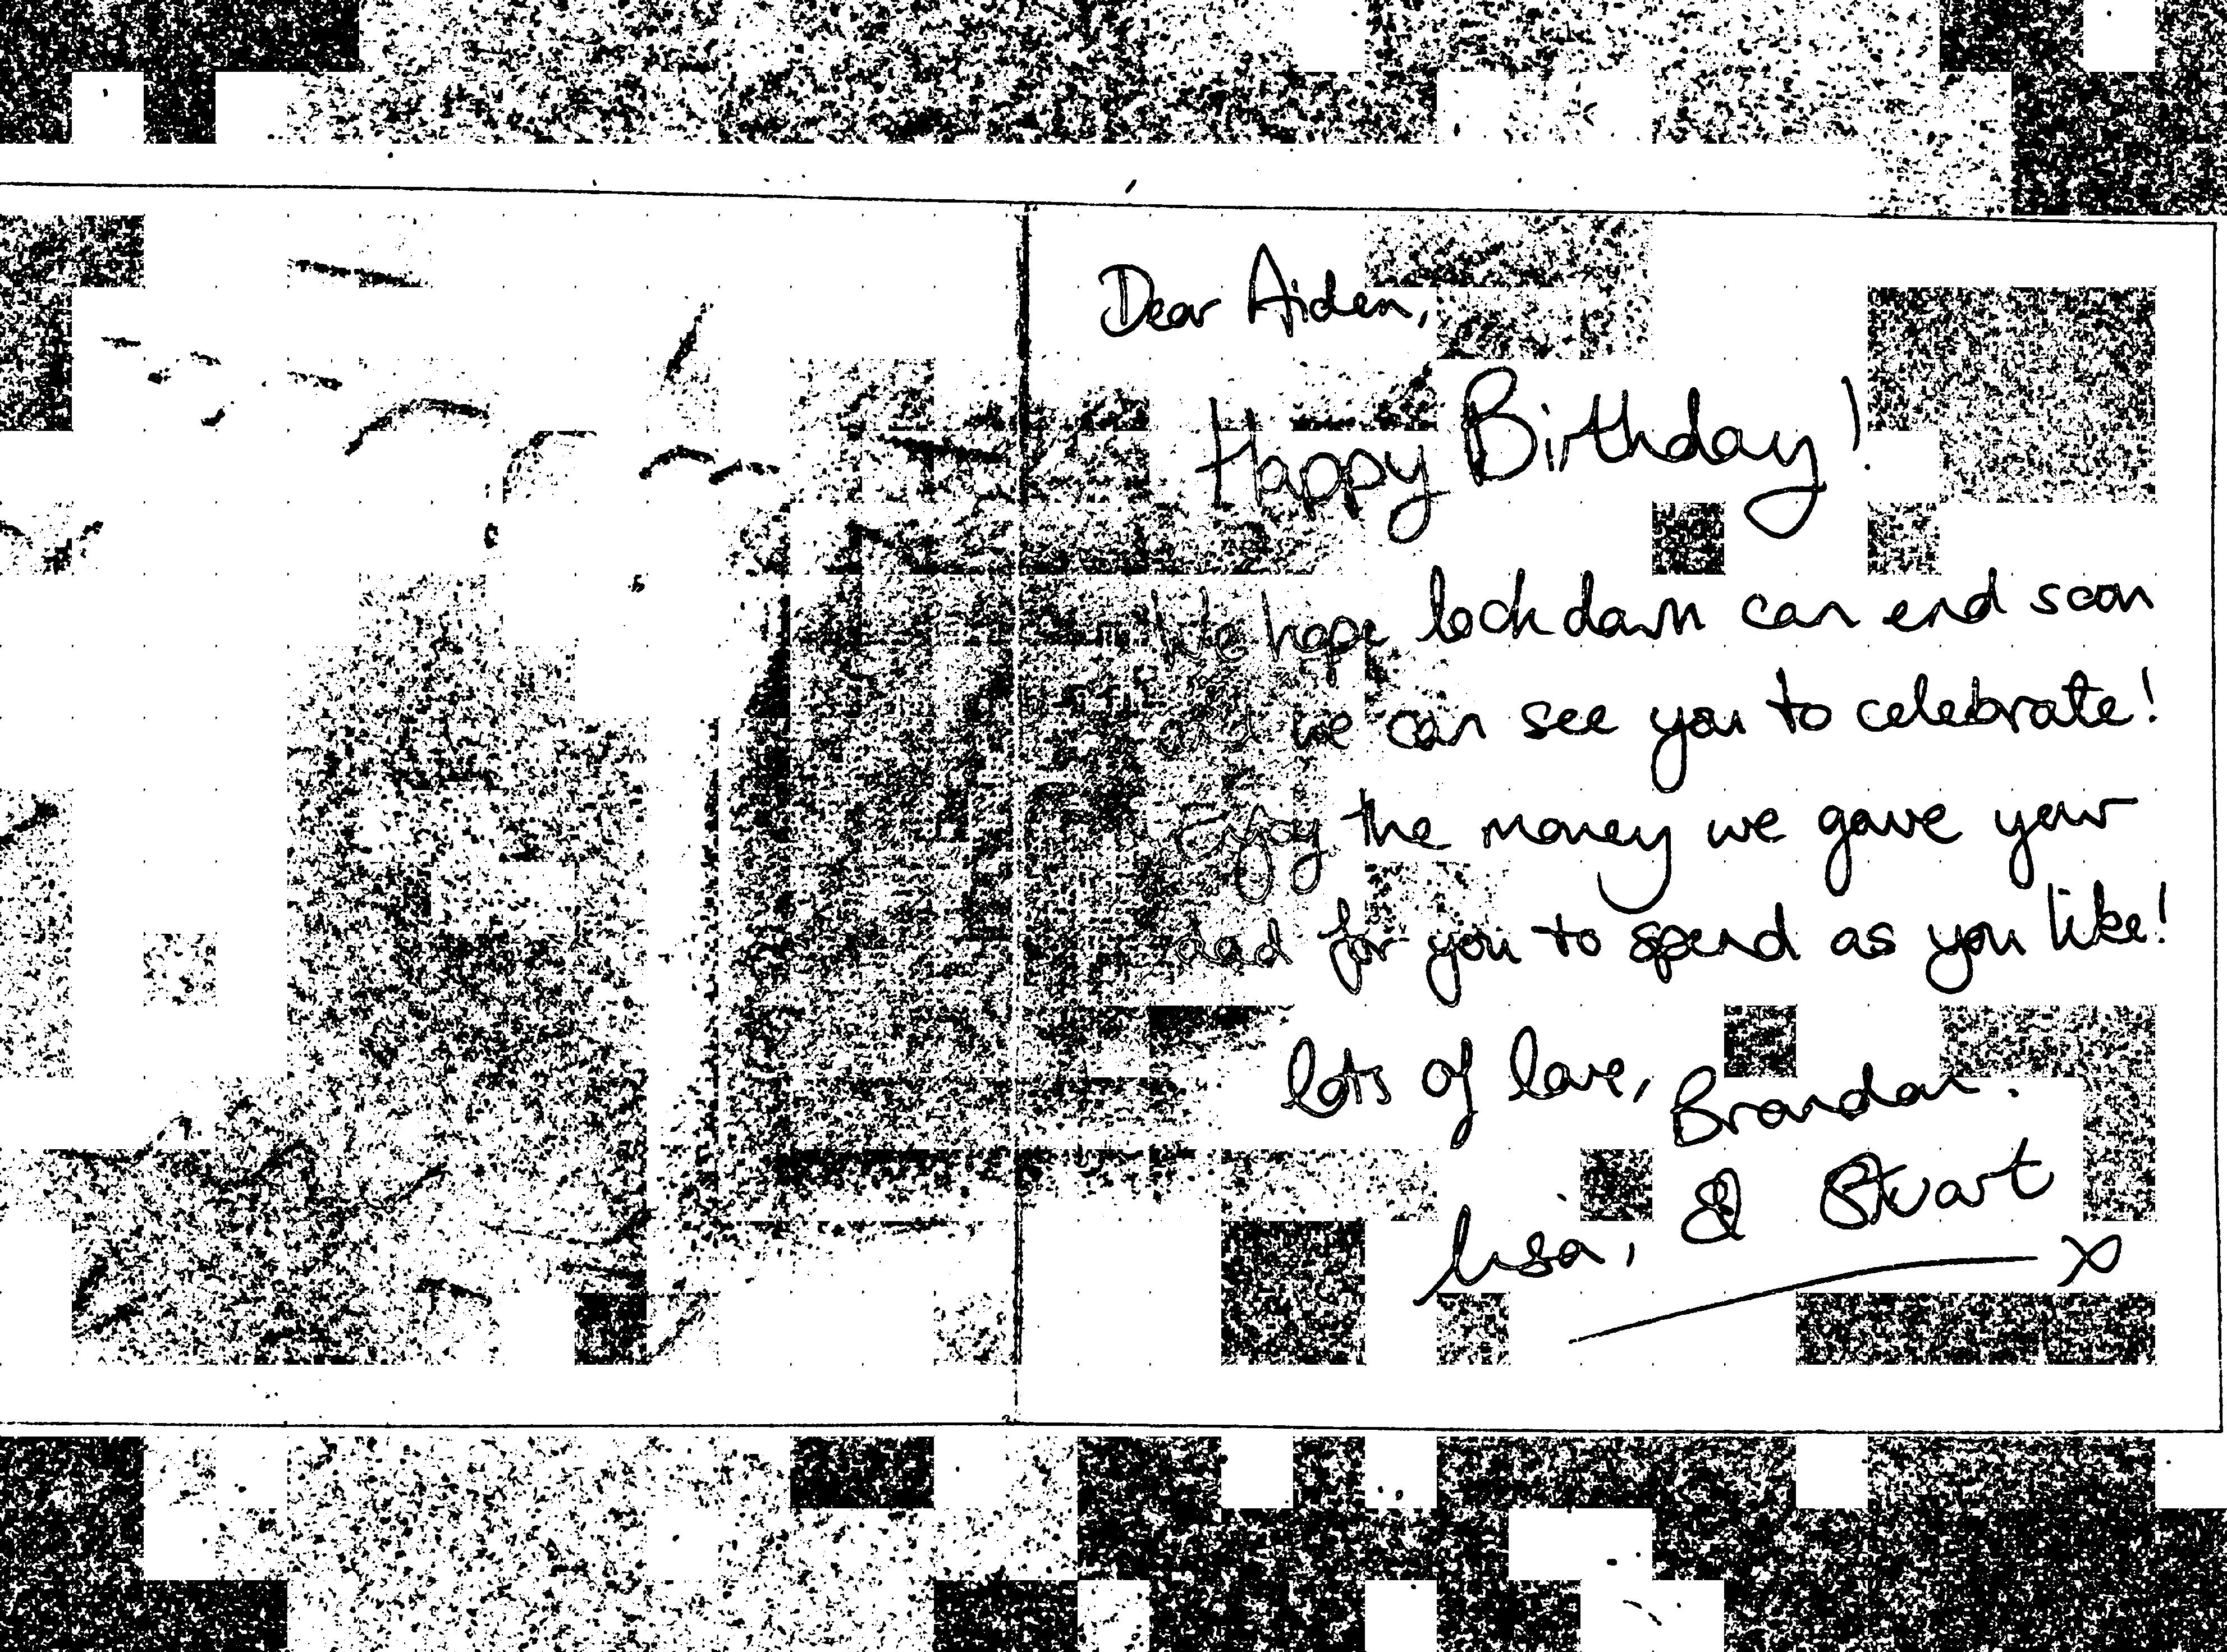 Dear Aiden,
Happy Birthday!
We hope lockdown can end soon
and we can see you to celebrate!
Enjoy the money we gave your
dad for you to spend as you like!
lots of love, Brandon.
Lisa, & Stuart
x